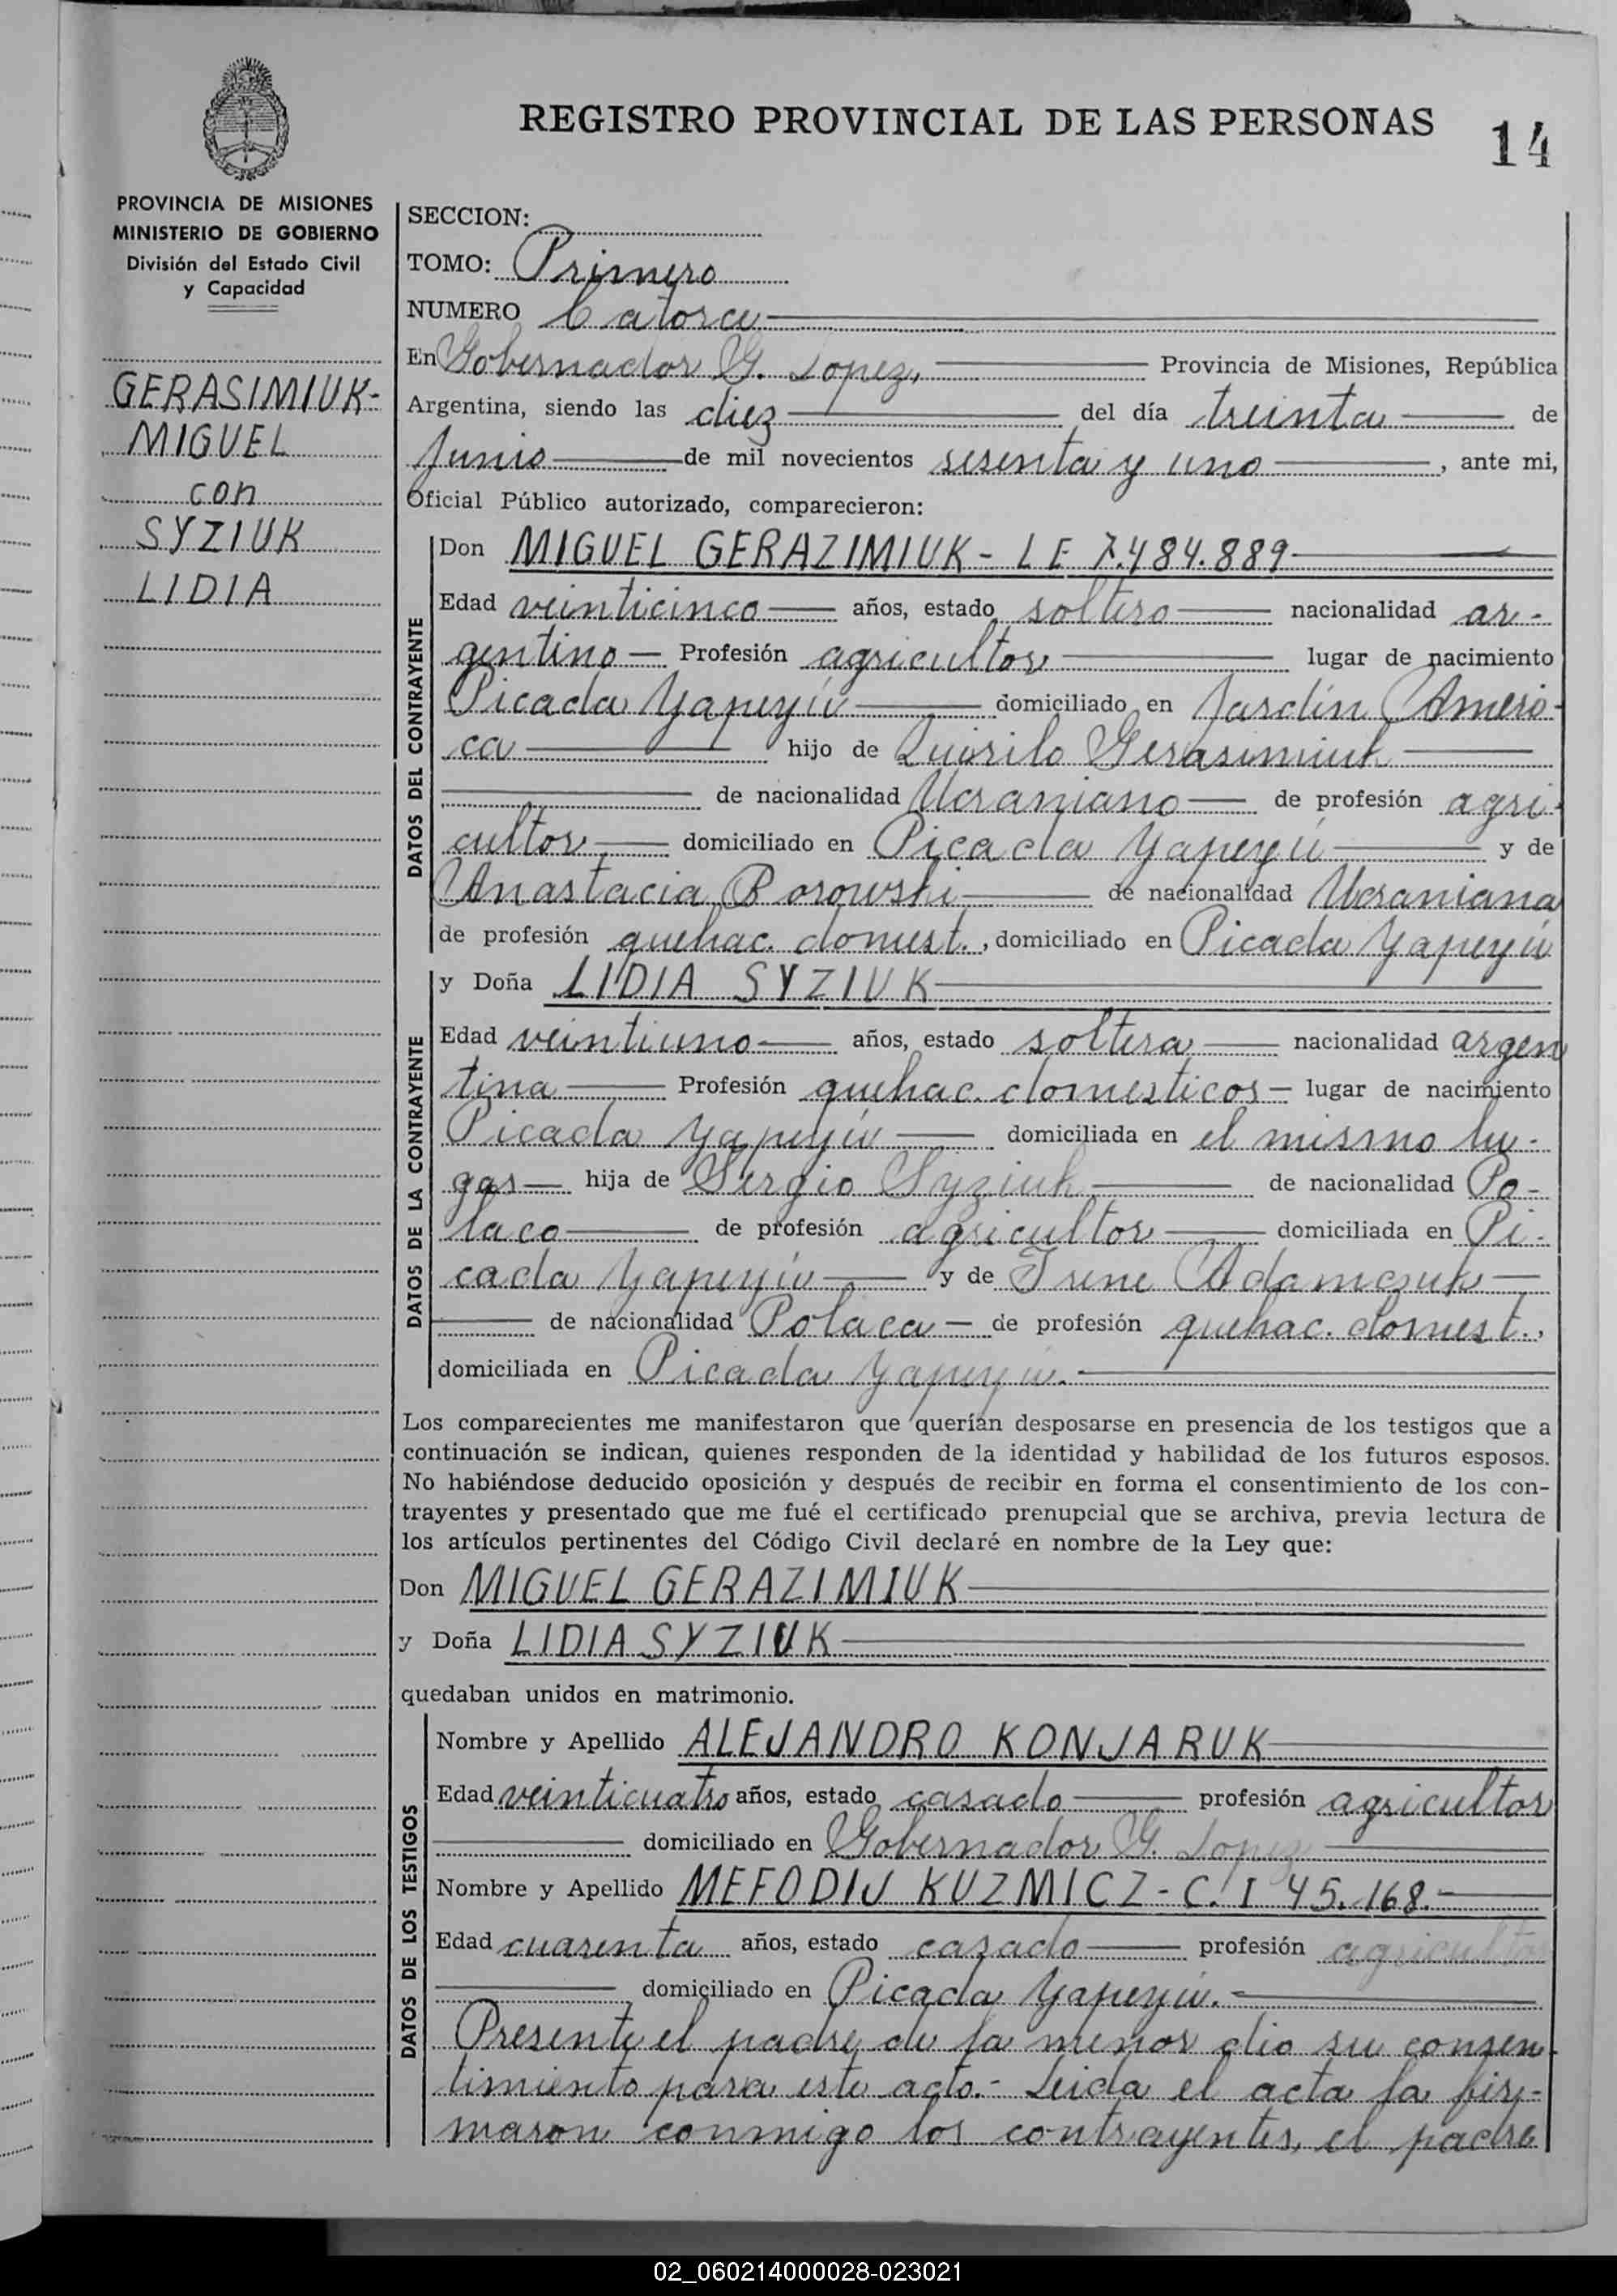 REGISTRO PROVINCIAL DE LAS PERSONAS
14
PROVINCIA DE MISIONES
MINISTERIO DE GOBIERNO
División del Estado Civil
y Capacidad
GERASIMIUK-
MIGUEL
con
SYZIUK
LIDIA
SECCION:
TOMO: Primero
NUMERO Catorce
En Gobernador G. Lopez, Provincia de Misiones, República
Argentina, siendo las diez del día treinta de
Junio de mil novecientos sesenta y uno, ante mi,
Oficial Público autorizado, comparecieron:
DATOS DEL CONTRAYENTE
Don MIGUEL GERAZIMIUK - LE 7.484.889
Edad veinticinco años, estado soltero nacionalidad ar-
gentino Profesión agricultor lugar de nacimiento
Picada Yapeyú domiciliado en Jardín Améri-
ca hijo de Quirilo Gerasimiuk
de nacionalidad Ucraniano de profesión agri-
cultor domiciliado en Picada Yapeyú y de
Anastacia Borowski de nacionalidad Ucraniana
de profesión quehac. domest., domiciliado en Picada Yapeyú
DATOS DE LA CONTRAYENTE
y Doña LIDIA SYZIUK
Edad veintiuno años, estado soltera nacionalidad argen
tina Profesión quehac. domesticos - lugar de nacimiento
Picada Yapeyú domiciliada en el mismo lu-
gar hija de Sergio Syziuk de nacionalidad Po-
laco de profesión agricultor domiciliada en Pi-
cada Yapeyú y de Irene Adamczuk
de nacionalidad Polaca de profesión quehac. domest.,
domiciliada en Picada Yapeyú.
Los comparecientes me manifestaron que querían desposarse en presencia de los testigos que a
continuación se indican, quienes responden de la identidad y habilidad de los futuros esposos.
No habiéndose deducido oposición y después de recibir en forma el consentimiento de los con-
trayentes y presentado que me fué el certificado prenupcial que se archiva, previa lectura de
los artículos pertinentes del Código Civil declaré en nombre de la Ley que:
Don MIGUEL GERAZIMIUK
y Doña LIDIA SYZIUK
quedaban unidos en matrimonio.
DATOS DE LOS TESTIGOS
Nombre y Apellido ALEJANDRO KONJARUK
Edad veinticuatro años, estado casado profesión agricultor
domiciliado en Gobernador G. Lopez
Nombre y Apellido MEFODIJ KUZMICZ - C. I 45.168.
Edad cuarenta años, estado cazado profesión agricultor
domiciliado en Picada Yapeyú.
Presente el padre de la menor dio su consen-
timiento para este acto.- Leida el acta la fir-
maron conmigo los contrayentes, el padre
02_060214000028-023021